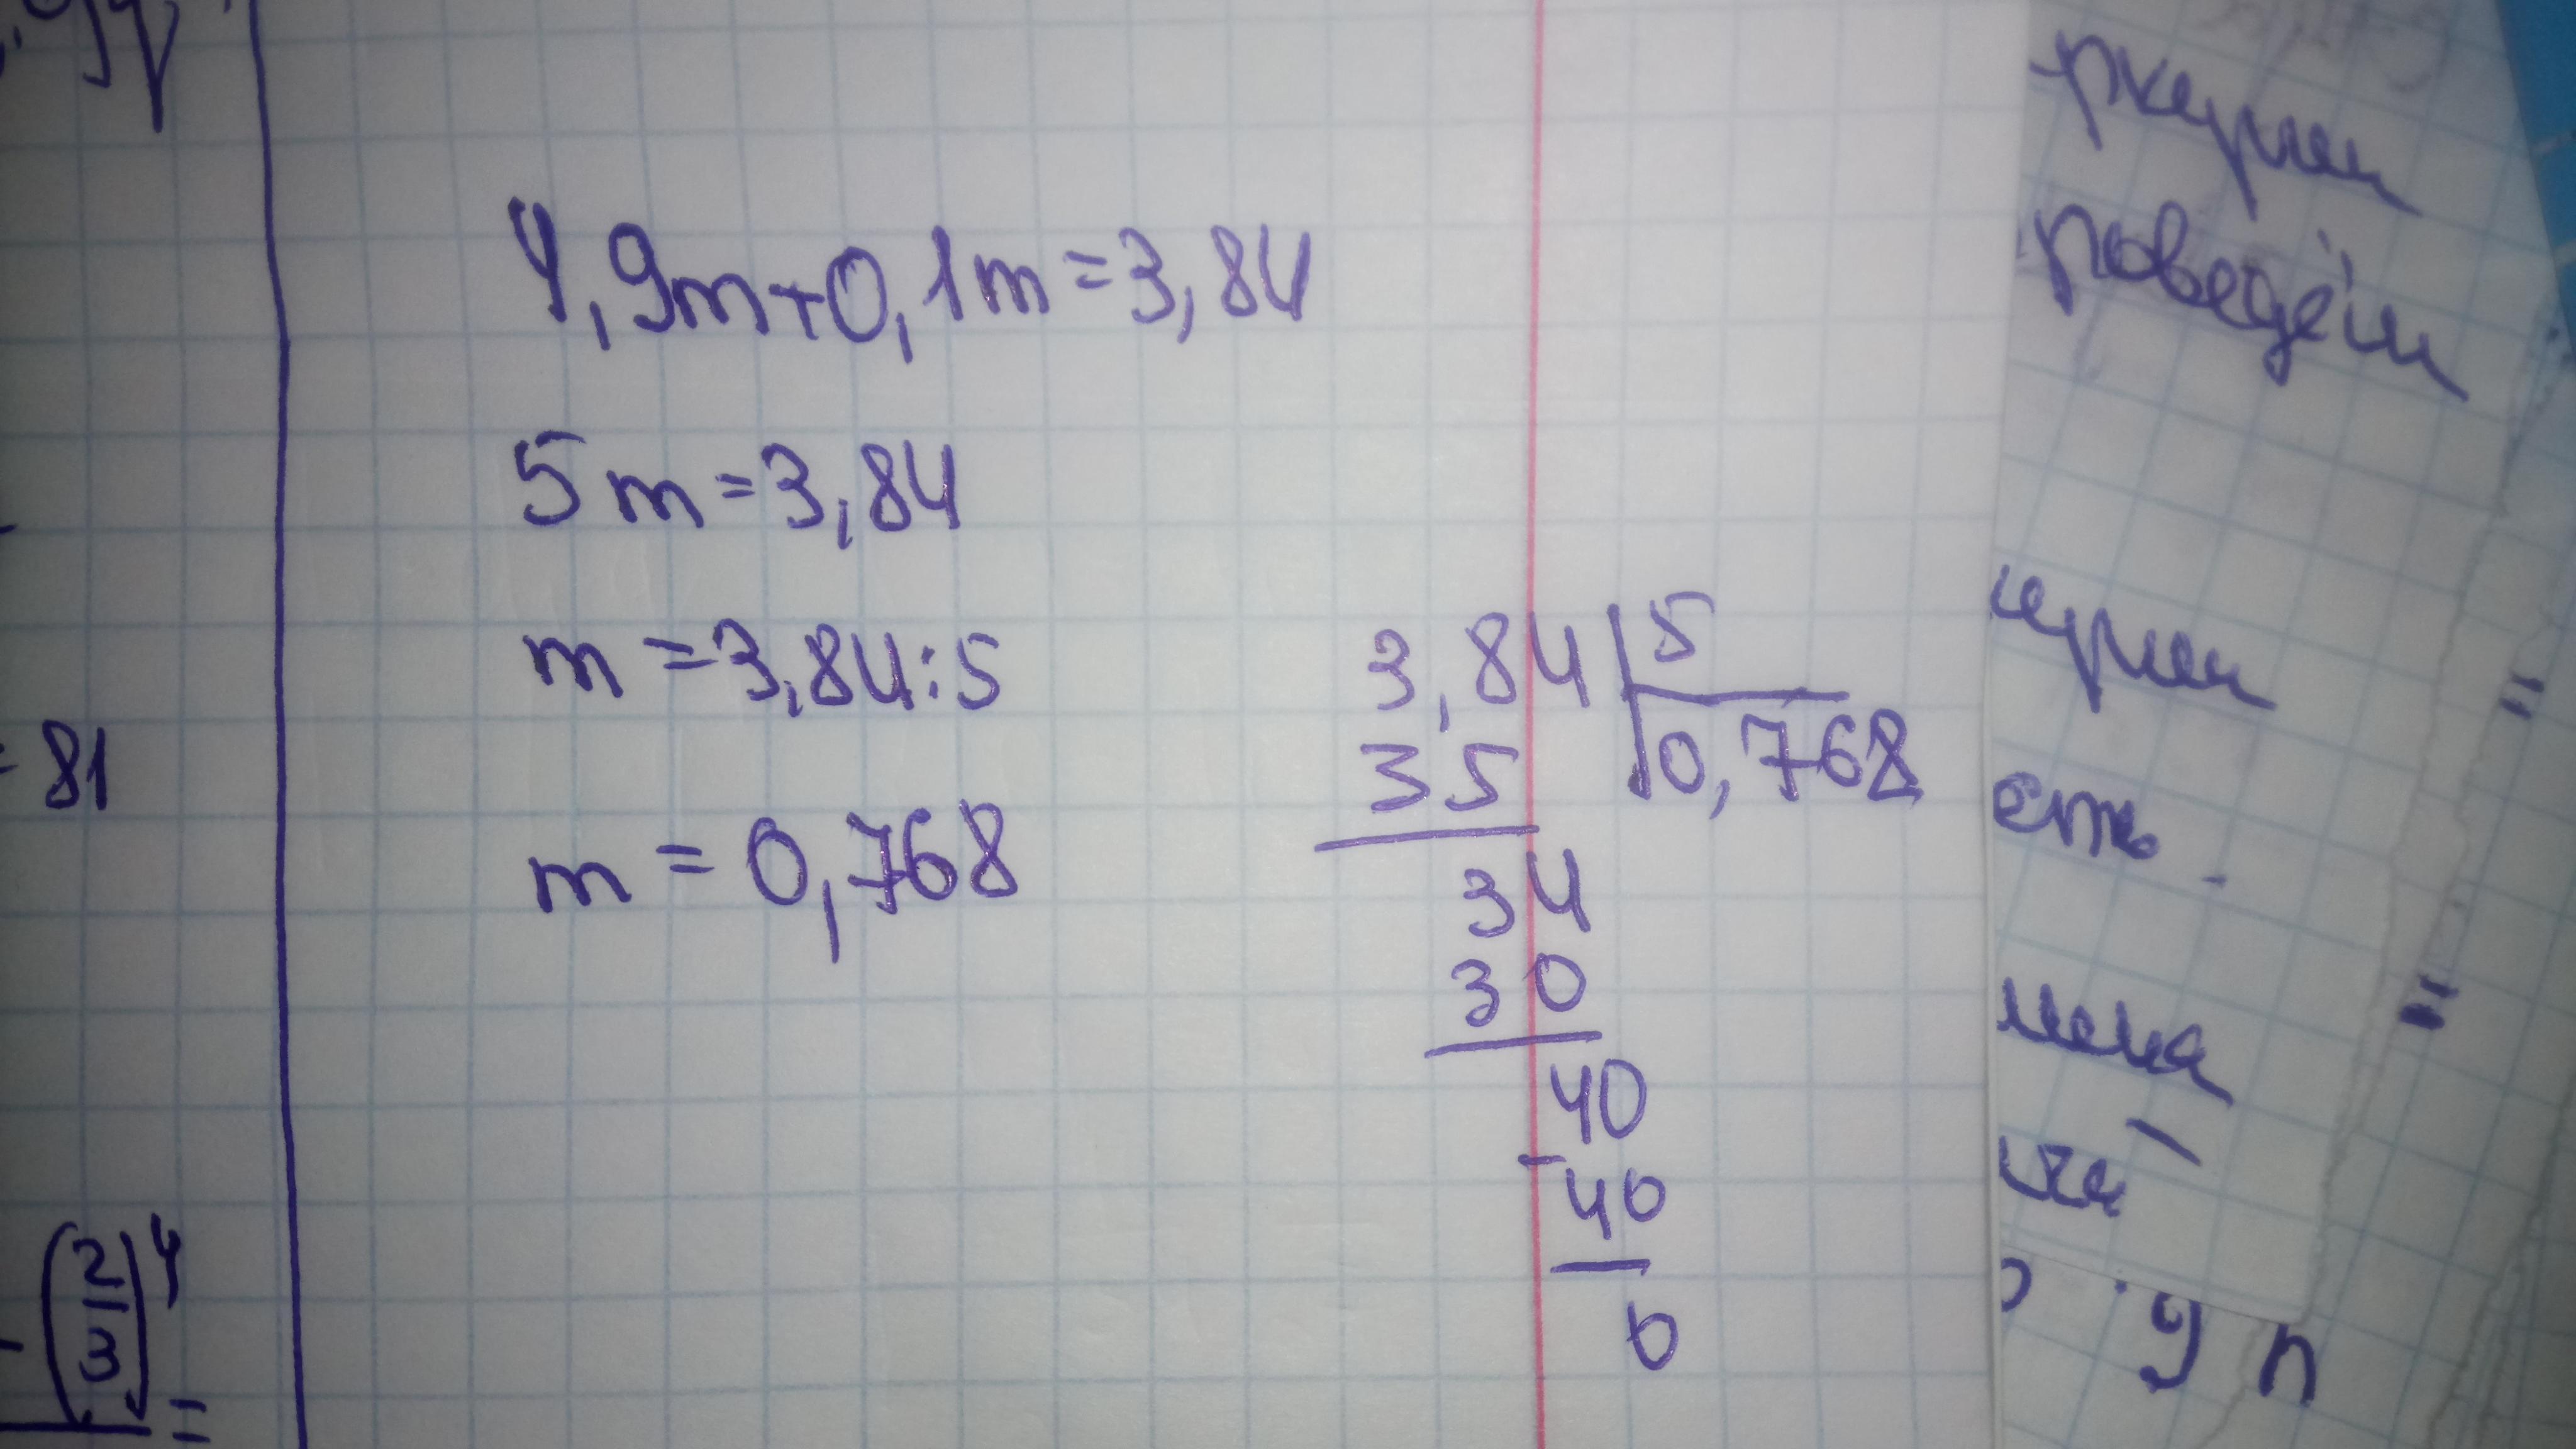 4,9m+0,1m=3,84
5m=3,84
m=3,84:5
m=0,768
3,84 5
35 0,768
34
30
40
-40
0
= 81
- (2/3)^4 =
роведём
=
=
9 п